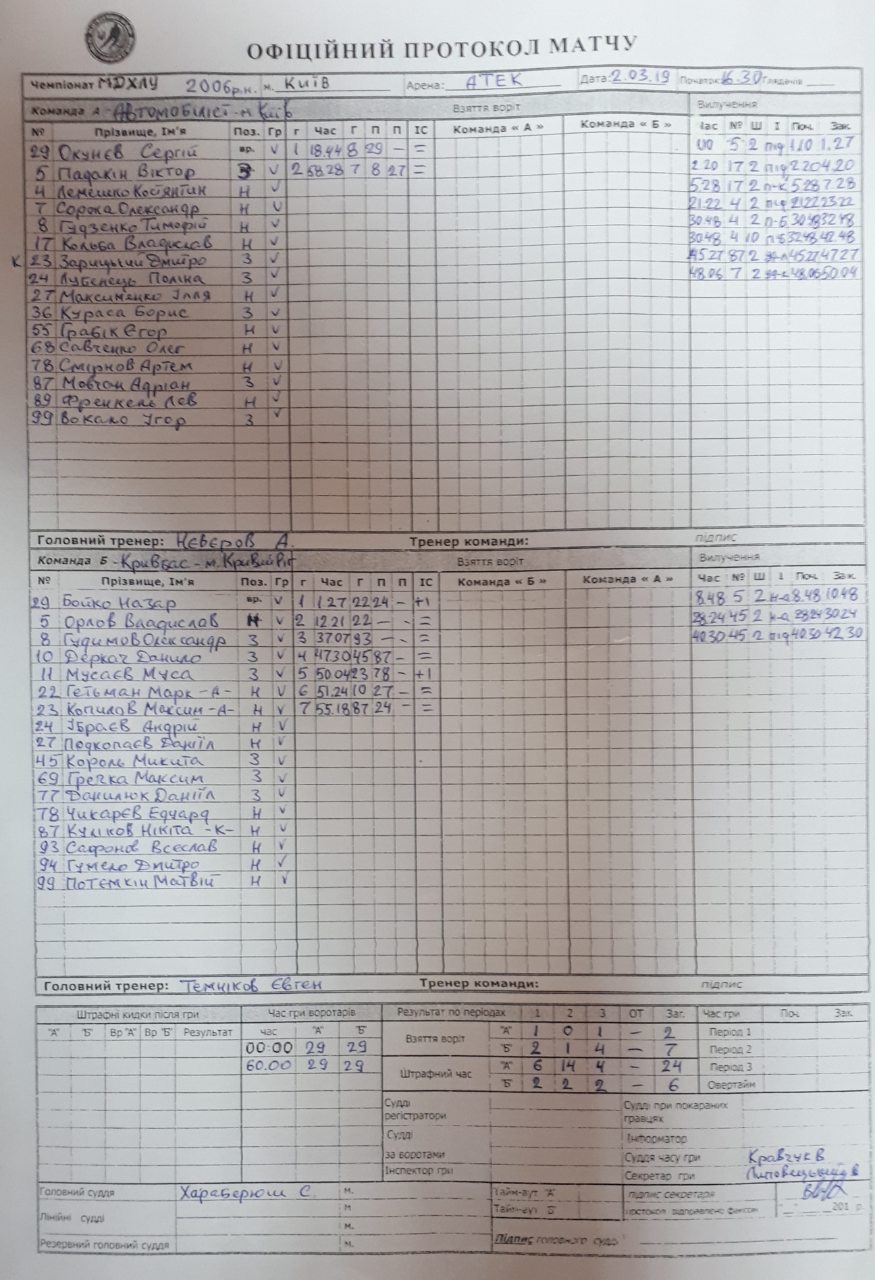 ОФІЦІЙНИЙ ПРОТОКОЛ МАТЧУ
Чемпіонат МДХЛУ 2006р.н. м. Київ Арена: АТЕК Дата: 2.03.19 Початок: 16.30 Глядачів
Команда А -Автомобіліст-м Київ Взяття воріт Вилучення
№ Прізвище, Ім'я Поз. Гр г Час Г П П ІС Команда « А » Команда « Б » Час № Ш І Поч. Зак.
29 Окунєв Сергій вр. v 1 18.44 8 29 - = 5 2 під 1.10 1.27
5 Падакін Віктор З v 2 58.28 7 8 27 = 2.20 17 2 під 2.20 4.20
4 Лемешко Костянтин Н v 5.28 17 2 п-к 5.28 7.28
7 Сорока Олександр Н v 21.22 4 2 під 21.22 23.22
8 Гудзенко Тимофій Н v 30.48 4 2 п-б 30.48 32.48
17 Кольба Владислав Н v 30.48 4 10 п-б 32.48 42.48
К 23 Зарицький Дмитро З v 45.27 87 2 45.27 47.27
24 Лубенець Поліна З v 48.06 7 2 48.06 50.04
27 Максименко Ілля Н v
36 Кураса Борис З v
55 Грабік Єгор Н v
68 Савченко Олег Н v
78 Смірнов Артем Н v
87 Мовчан Адріан З v
89 Френкель Лев Н v
99 Вокало Ігор З v
Головний тренер: Нєвєров А. Тренер команди: підпис
Команда Б -Кривбас-м.Кривий Ріг Взяття воріт Вилучення
№ Прізвище, Ім'я Поз. Гр г Час Г П П ІС Команда « Б » Команда « А » Час № Ш І Поч. Зак.
29 Бойко Назар вр. v 1 1.27 22 24 - +1 8.48 5 2 н-а 8.48 10.48
5 Орлов Владислав Н v 2 12.21 22 - - = 28.24 45 2 н-а 28.24 30.24
8 Гудимов Олександр З v 3 37.07 93 - - = 40.30 45 2 під 40.30 42.30
10 Деркач Данило З v 4 47.30 45 87 - =
11 Мусаєв Муса З v 5 50.04 23 78 - +1
22 Гетьман Марк -А- Н v 6 51.24 10 27 - =
23 Копилов Максим -А- Н v 7 55.18 87 24 - =
24 Ібраєв Андрій Н v
27 Подкопаєв Даніїл Н v
45 Король Микита З v
69 Гречка Максим З v
77 Данилюк Даніїл З v
78 Чикарєв Едуард Н v
87 Куліков Нікіта -К- Н v
93 Сафонов Всеслав Н v
94 Гумело Дмитро Н v
99 Потємкін Матвій Н v
Головний тренер: Темніков Євген Тренер команди: підпис
Штрафні кидки після гри Час гри воротарів Результат по періодах 1 2 3 ОТ Заг. Час гри Поч. Зак.
"А" "Б" Вр "А" Вр "Б" Результат час "А" "Б" Взяття воріт "А" 1 0 1 - 2 Період 1
00:00 29 29 "Б" 2 1 4 - 7 Період 2
60.00 29 29 Штрафний час "А" 6 14 4 - 24 Період 3
"Б" 2 2 2 - 6 Овертайм
Судді реєстратори Судді при покараних гравцях
Судді за воротами Інформатор
Суддя часу гри Кравчук В
Інспектор гри Секретар гри
Головний суддя Хараберюш С. м. Тайм-аут "А" підпис секретаря
Лінійні судді м Тайм-аут "Б" протокол відправлено факсом 201 р.
м.
Резервний головний суддя м. Підпис головного судді